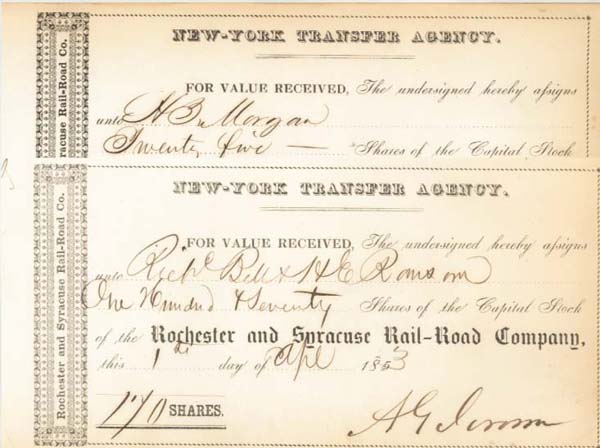 NEW-YORK TRANSFER AGENCY.
FOR VALUE RECEIVED, The undersigned hereby assigns
unto Morgan
Twenty five — Shares of the Capital Stock
racuse Rail-Road Co.
NEW-YORK TRANSFER AGENCY.
FOR VALUE RECEIVED, The undersigned hereby assigns
unto Richd Bell & H E Ransom
One Hundred & Seventy Shares of the Capital Stock
of the Rochester and Syracuse Rail-Road Company,
this 1st day of Apl 1853
170 SHARES.
A G Jerome
Rochester and Syracuse Rail-Road Co.